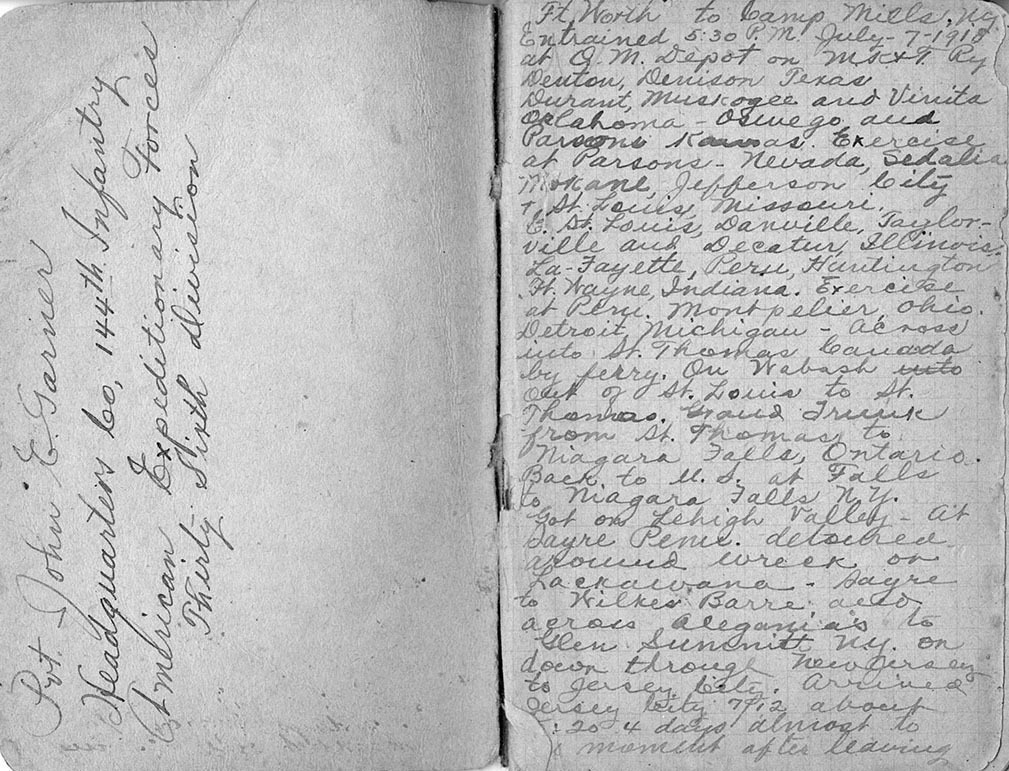 Pvt. John E. Garner
Headquarters Co, 144th Infantry
American Expeditionary Forces
Thirty Sixth division
Ft Worth to Camp Mills, NY
Entrained 5:30 P.M. July-7-1918
at Q. M. Depot on M K & T Ry
Denton, Denison Texas
Durant, Muskogee and Vinita
Oklahoma - Oswego and
Parsons Kansas. Exercise
at Parsons - Nevada, Sedalia
Mokane, Jefferson City
+ St. Louis, Missouri.
E. St. Louis, Danville, Taylor-
ville and Decatur Illinois.
La-Fayette, Peru, Huntington
Ft. Wayne, Indiana. Exercise
at Peru. Montpelier, Ohio.
Detroit Michigan - Across
into St. Thomas Canada
by ferry. On Wabash into
out of St. Louis to St.
Thomas. Grand Trunk
from St. Thomas to
Niagara Falls, Ontario.
Back to U. S. at Falls
to Niagara Falls N.Y.
Got on Lehigh Valley - At
Sayre Penn. detoured
around wreck on
Lackawana - Sayre
to Wilkes Barre, and
across Aleganias to
Glen Summitt NY. on
down through New Jersey
to Jersey City. Arrived
Jersey City 7/12 about
:20 4 days almost to
moment after leaving